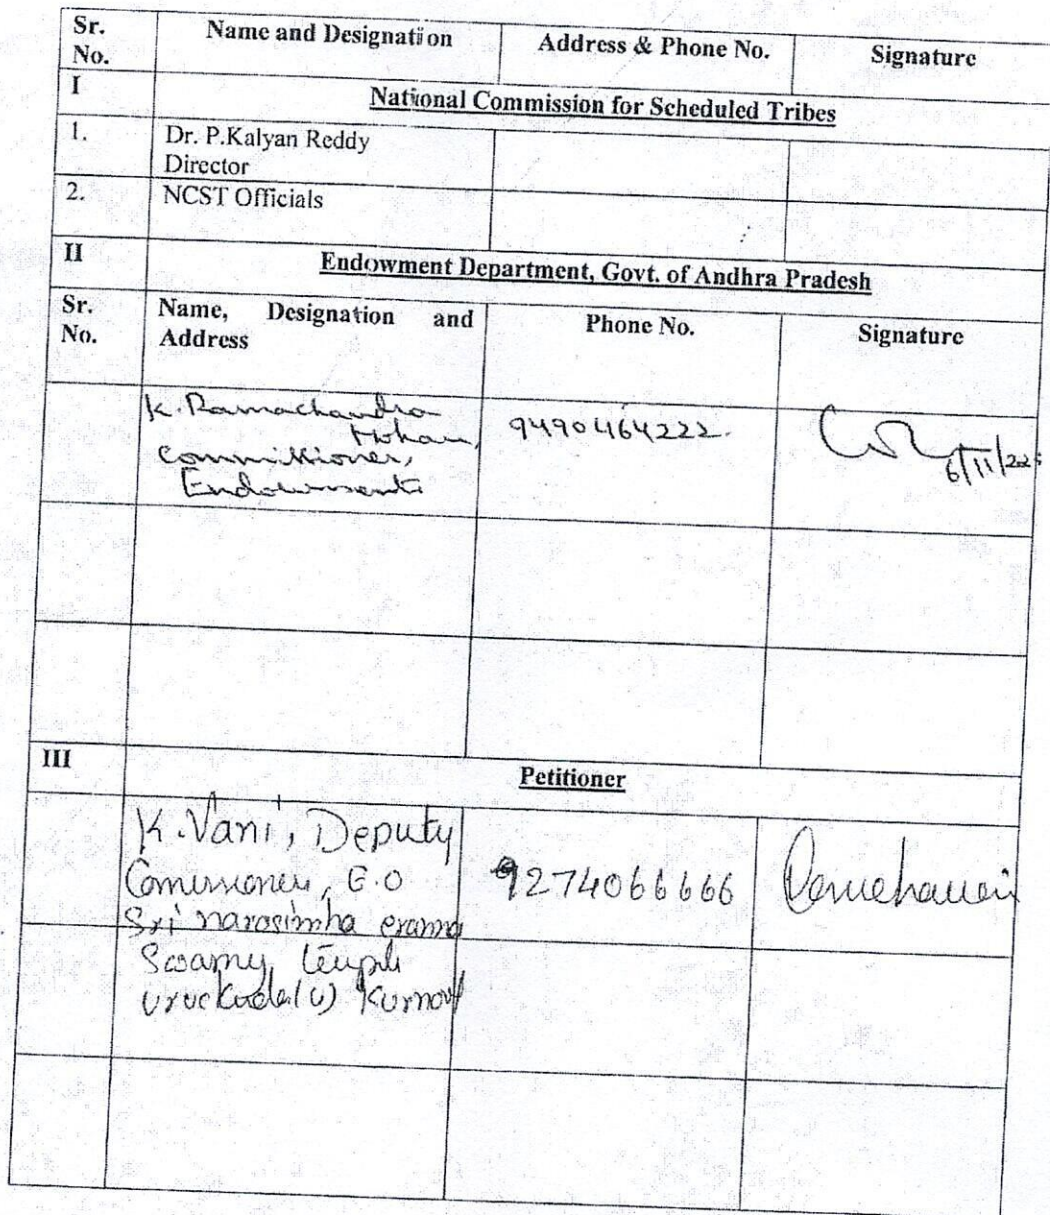 Sr. No. Name and Designation Address & Phone No. Signature
I National Commission for Scheduled Tribes
1. Dr. P.Kalyan Reddy
Director
2. NCST Officials
II Endowment Department, Govt. of Andhra Pradesh
Sr. No. Name, Designation and Address Phone No. Signature
K. Ramachandra
Mohan,
Commissioner,
Endowments
9490464222.
6/11/22
III Petitioner
K. Vani, Deputy
Comissioner, E.O
Sri narasimha
Swamy temple
(v) Kurnool
9274066666